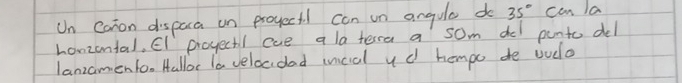 Un Cañon dispara un proyectil con un angulo de 35° con la
horizontal. El proyectil cae a la terra a 50m del punto del
lanzamiento. Hallar la velocidad inicial y el tiempo de vuelo